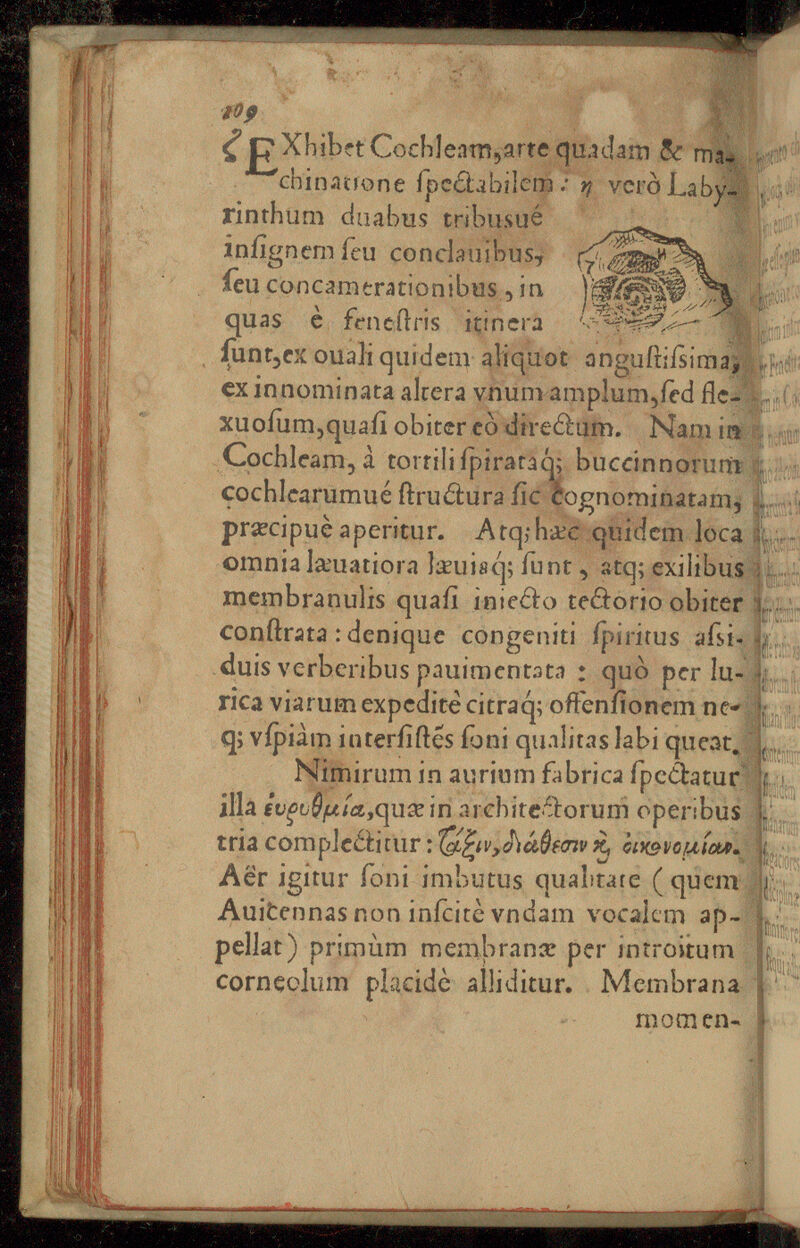 209
ζ EXhibet Cochleam,arte quadam & ma-
chinatione ſpectabilem: η verò Laby-
rinthum duabus tribusué
inſignem ſeu conclauibus,
ſeu concamerationibus, in
quas é feneſtris itinera
ſunt,ex ouali quidem aliquot anguſtiſsima,
ex innominata altera vnum amplum,ſed fle-
xuoſum,quaſi obiter eò directum. Nam in
Cochleam, à tortili ſpirataq; buccinnorum
cochlearumué ſtructura ſic cognominatam,
præcipuè aperitur. Atq; hæc quidem loca
omnia læuatiora læuiaq; ſunt, atq; exilibus
membranulis quaſi iniecto tectorio obiter
conſtrata: denique congeniti ſpiritus aſsi-
duis verberibus pauimentata: quò per lu-
rica viarum expedité citraq; offenſionem ne-
q; vſpiàm interſiſtés ſoni qualitas labi queat.
Nimirum in aurium fabrica ſpectatur
illa ἐυρυθμία,quæ in architectorum operibus
tria complectitur: τάξιν,διάθεσιν & ὀικονομίαν.
Aër igitur ſoni imbutus qualitate (quem
Auitennas non inſcitè vndam vocalem ap-
pellat) primùm membranæ per introitum
corneolum placidè alliditur. Membrana
momen-